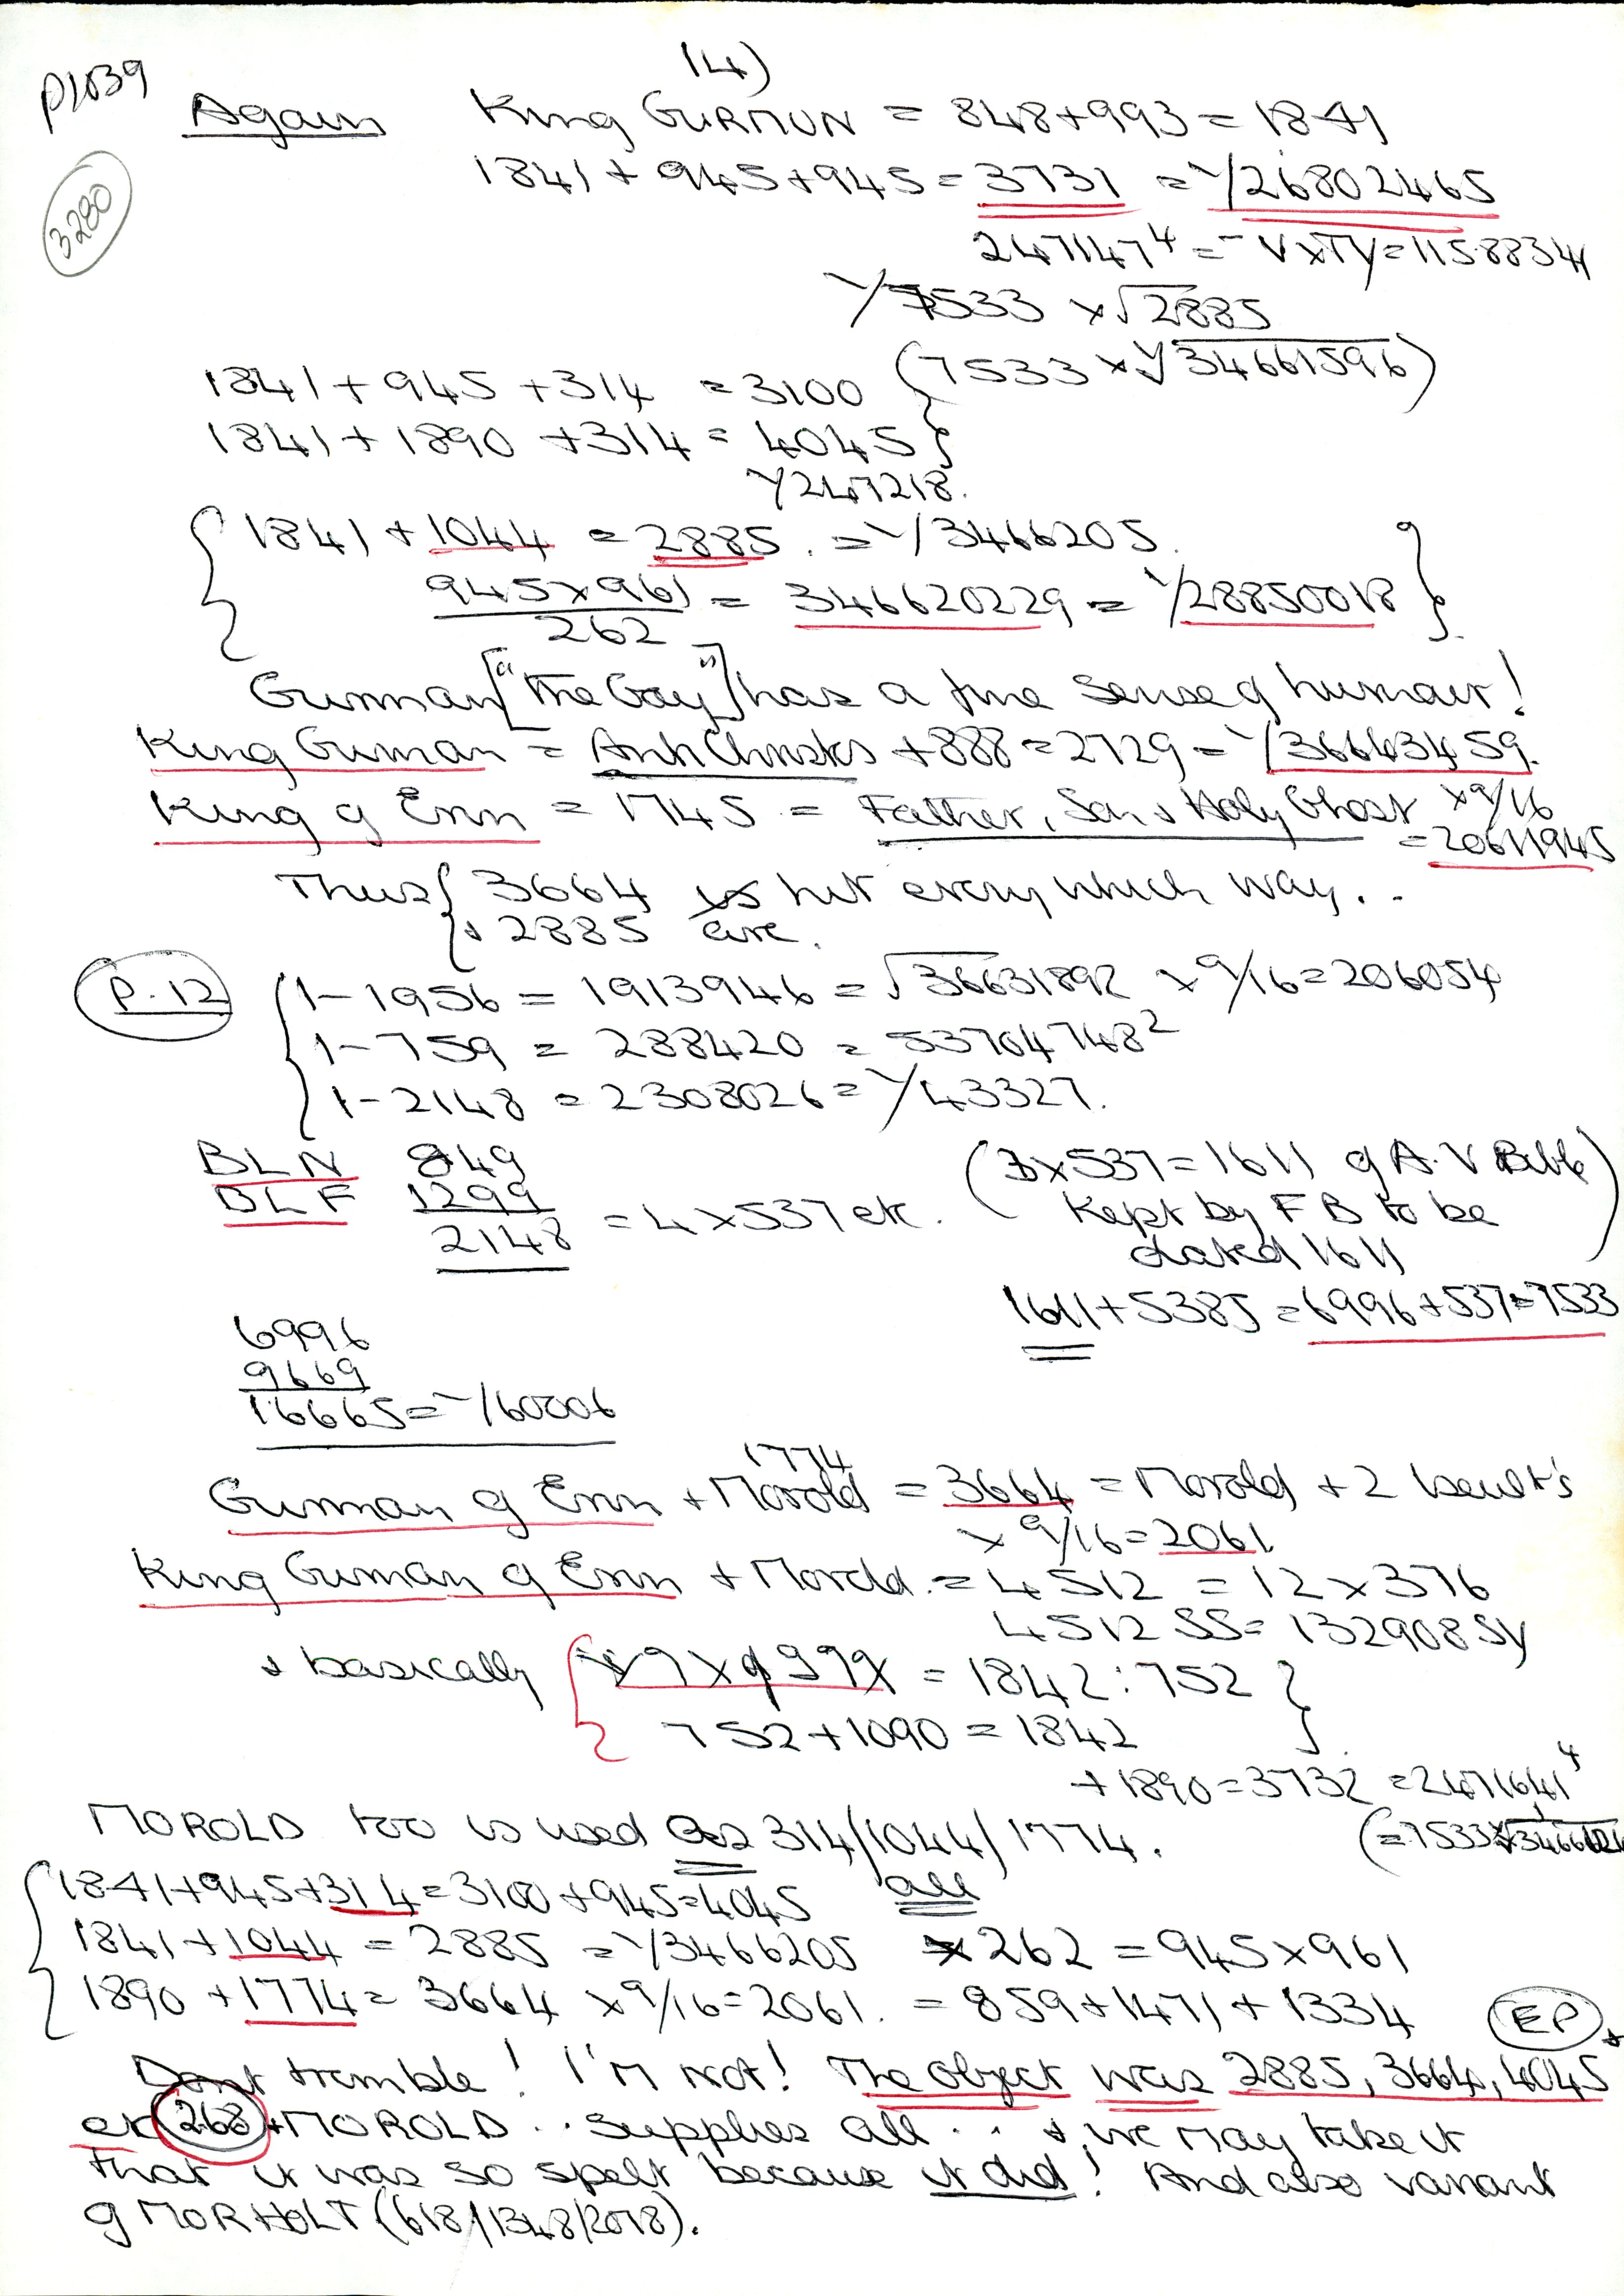 14)
P1039
3280
Again King GURMUN = 848+993 = 1841
1841 + 945+945 = 3731 = 1/26802465
247147⁴ = VxTy = 11588341
1/7533 x √2885
(7533 x √34661596)
1841 + 945 + 314 = 3100
1841 + 1890 + 314 = 4045
1/247218.
1841 + 1044 = 2885. = 1/3466205.
945x961 / 262 = 346620229 = 1/28850018
Gurman ["the Gay"] has a fine sense of humour!
King Gurman = AntiChristos +888 = 2729 = 1/36643459.
King of Erin = 1745 = Father, Son & Holy Ghost x 9/16
= 20611945
Thus { 3664 is hit every which way..
{ & 2885 are.
P.12
1-1956 = 1913946 = √36631892 x 9/16 = 206054
1-759 = 288420 = 53704748²
1-2148 = 2308026 = 1/43327.
BLN 849
BLF 1299
2148 = 4 x 537 etc.
(3x537 = 1611 of A.V Bible
Kept by FB to be
dated 1611)
1611 + 5385 = 6996 + 537 = 7533
6996
9669
16665 = 1/60006
1774
Gurman of Erin + Morold = 3664 = Morold + 2
x 9/16 = 2061
King Gurman of Erin + Morold. = 4512 = 12 x 376
4512 SS = 132908 Sy
& basically = 1842 : 752
752 + 1090 = 1842
+ 1890 = 3732 = 2471641⁴
MOROLD too is used as 314/1044/1774.
all
1841+945+314 = 3100+945 = 4045
1841 + 1044 = 2885 = 1/3466205 x 262 = 945x961
1890 + 1774 = 3664 x 9/16 = 2061. = 859 + 1471 + 1334 EP
Dont tremble! I'm not! The object was 2885, 3664, 4045
etc 268 + MOROLD .. supplies all .. & we may take it
that it was so spelt because it did! And also variant
of MORHOLT (618/1348/2078).